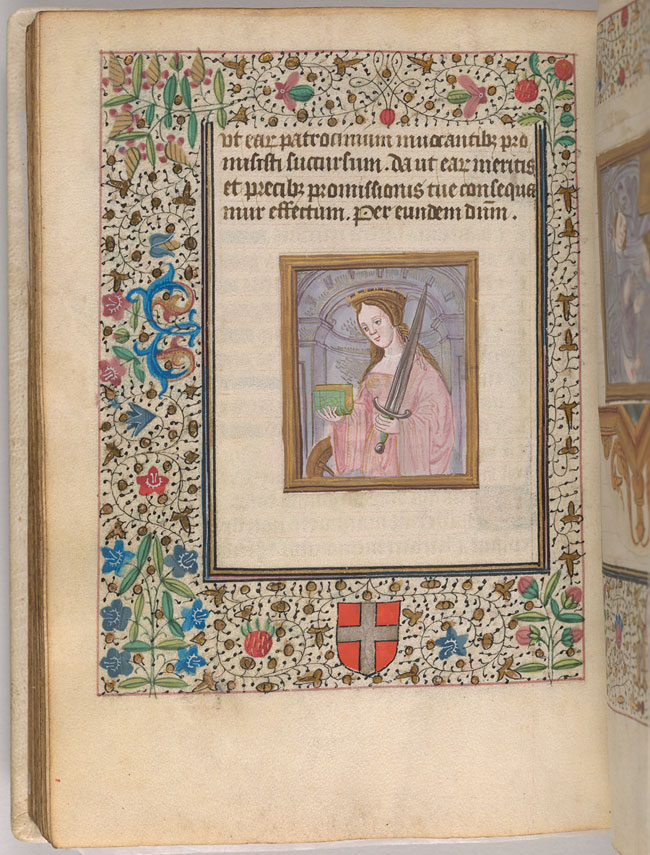 vt ear patrocinium inuocantibꝫ pro
misisti succursum. da ut ear meritis
et precibꝫ promissionis tue consequa
mur effectum. Per eundem dūm.